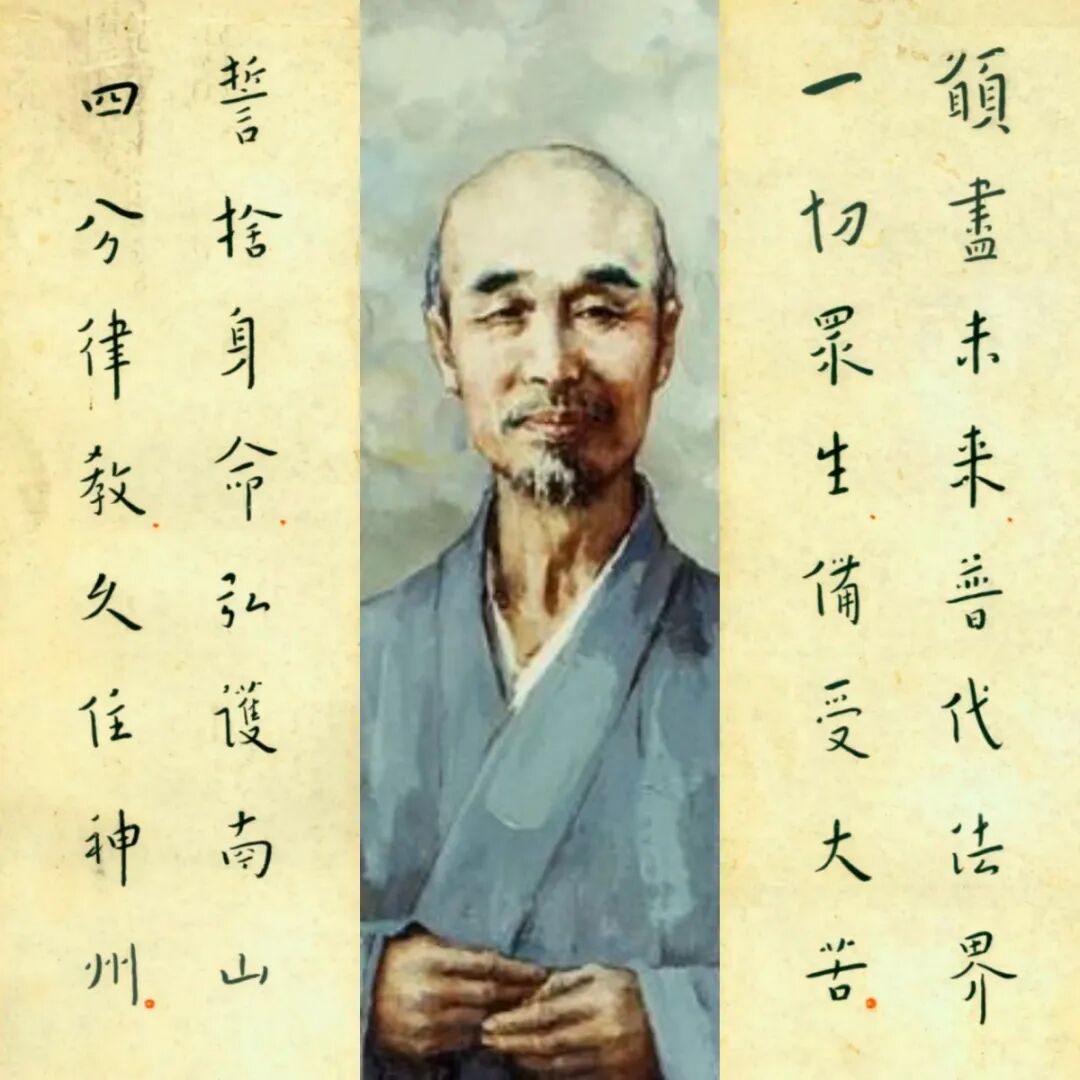 願盡未来普代法界
一切眾生備受大苦
誓捨身命弘護南山
四分律教久住神州